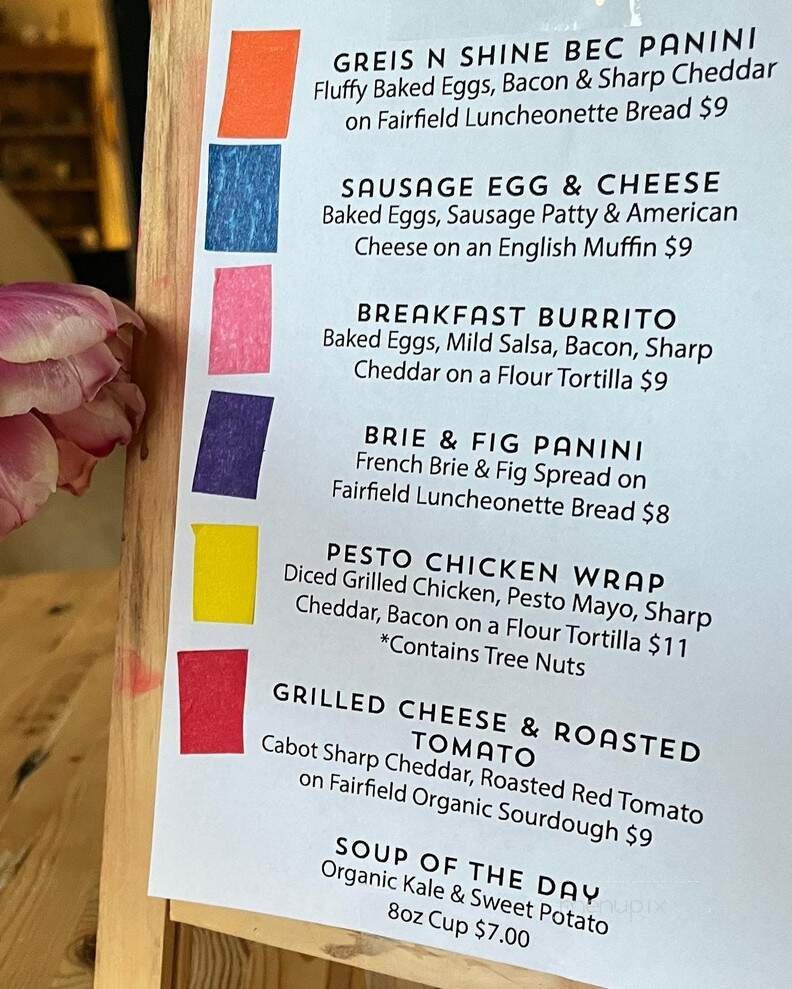 GREIS N SHINE BEC PANINI
Fluffy Baked Eggs, Bacon & Sharp Cheddar
on Fairfield Luncheonette Bread $9
SAUSAGE EGG & CHEESE
Baked Eggs, Sausage Patty & American
Cheese on an English Muffin $9
BREAKFAST BURRITO
Baked Eggs, Mild Salsa, Bacon, Sharp
Cheddar on a Flour Tortilla $9
BRIE & FIG PANINI
French Brie & Fig Spread on
Fairfield Luncheonette Bread $8
PESTO CHICKEN WRAP
Diced Grilled Chicken, Pesto Mayo, Sharp
Cheddar, Bacon on a Flour Tortilla $11
*Contains Tree Nuts
GRILLED CHEESE & ROASTED
TOMATO
Cabot Sharp Cheddar, Roasted Red Tomato
on Fairfield Organic Sourdough $9
SOUP OF THE DAY
Organic Kale & Sweet Potato
8oz Cup $7.00